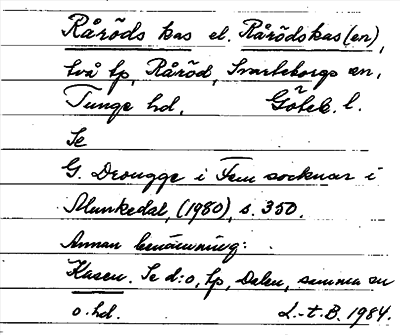 Råröds kas el. Rårödskas(en),
två tp, Råröd, Svarteborgs sn,
Tunge hd, Göteb. l.
Se
G. Drougge i Fem socknar i
Munkedal, (1980), s. 350.
Annan benämning:
Kasen. Se d:o, tp, Dalen, samma sn
o. hd. L.-t. B. 1984.